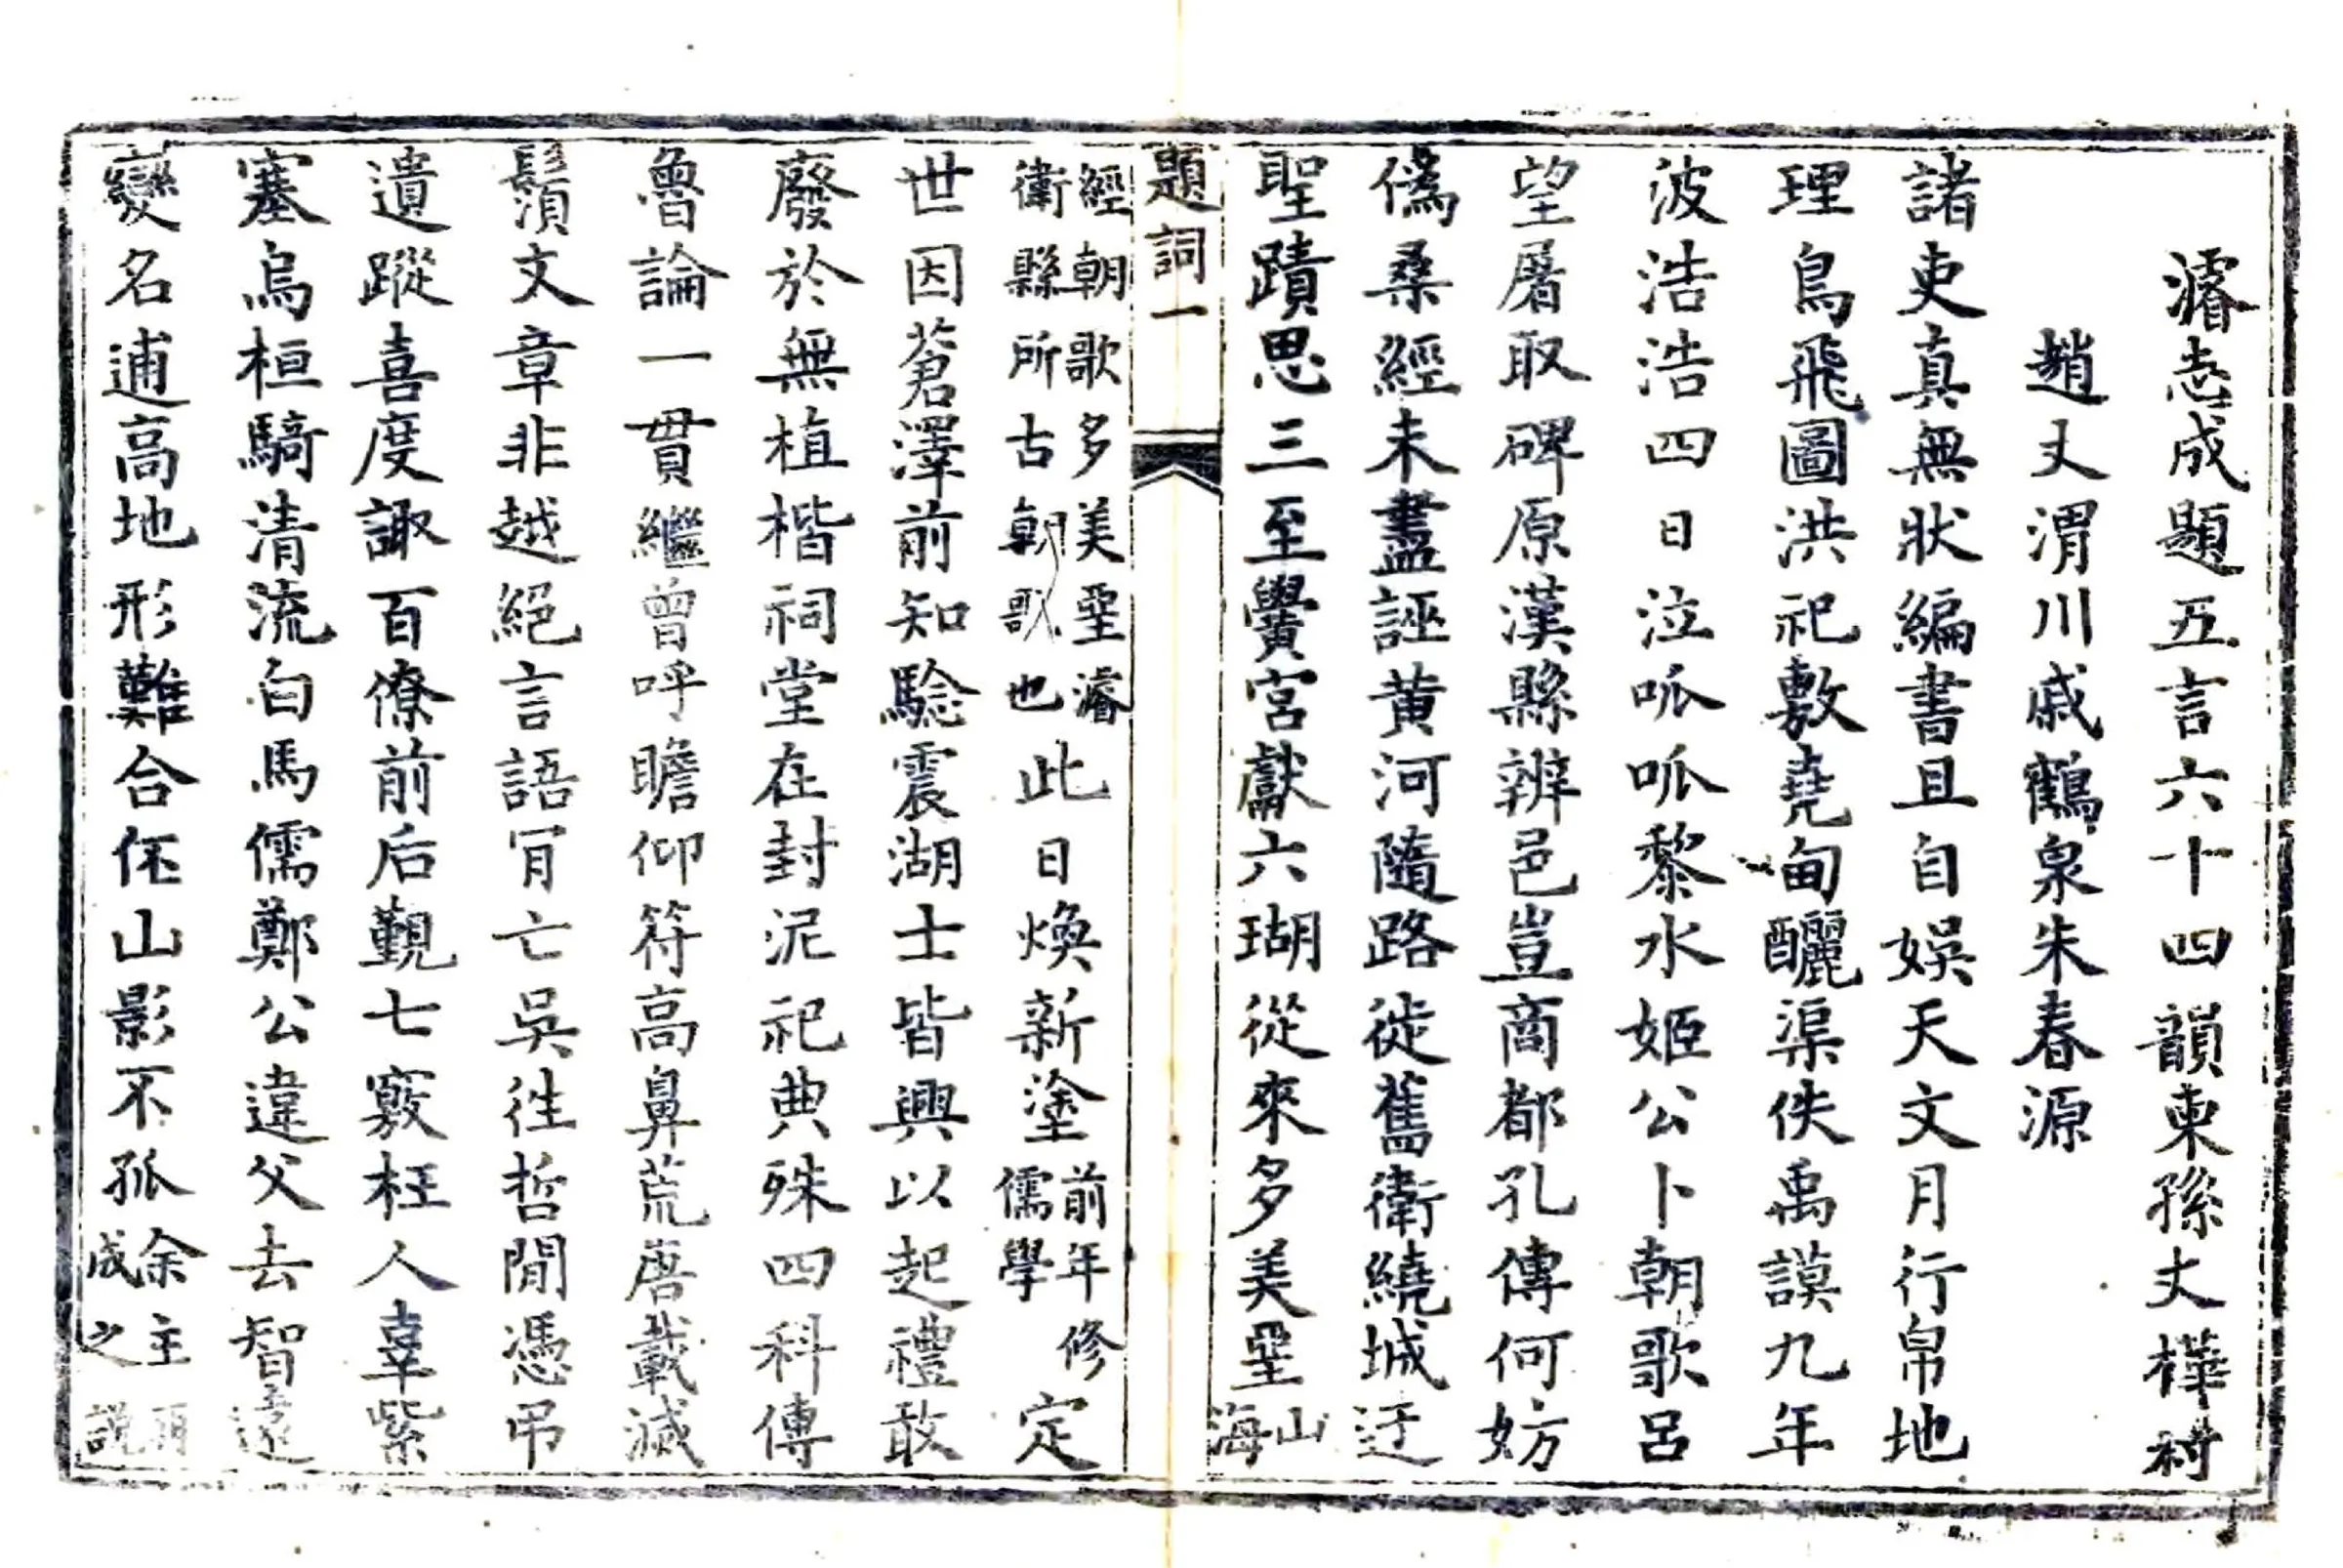 濬志成題五言六十四韻柬孫丈樺村
趙丈渭川戚鶴泉朱春源
諸吏真無狀編書且自娛天文月行帛地
理鳥飛圖洪祀敷堯甸釃渠佚禹謨九年
波浩浩四日泣呱呱黎水姬公卜朝歌呂
望屠取碑原漢縣辨邑豈商都孔傳何妨
僞桑經未盡誣黃河隨路徙舊衛繞城迂
聖蹟思三至黌宮獻六瑚從來多美堊山海
題詞一
經朝歌多美堊濬衛縣所古朝歌也此日煥新塗前年修儒學定
世因蒼澤前知騐震湖士皆興以起禮敢
廢於無植楷祠堂在封泥祀典殊四科傳
魯論一貫繼曾呼瞻仰符高鼻荒唐載減
鬚文章非越絕言語肎亡吳徃哲閒憑弔
遺蹤喜度諏百僚前后覲七竅枉人辜紫
塞烏桓騎清流白馬儒鄭公違父去智遠
變名逋高地形難合伾山影不孤余主兩成之説